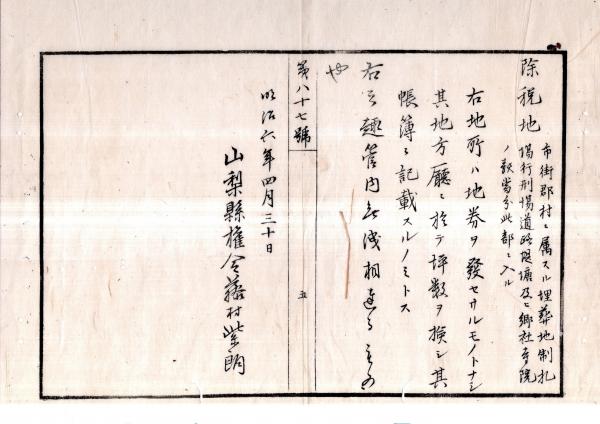 除税地
市街郡村ニ属スル埋葬地制札
場行刑場道路堤塘及ヒ郷社寺院
ノ類当分此部ニ入ル
右地所ハ地券ヲ發セサルモノトナシ
其地方廳ニ於テ坪数ヲ検シ其
帳簿ニ記載スルノミトス
右之趣管内無洩相達するもの
也
第八十七號
明治六年四月三十日
山梨縣権令藤村紫朗
五